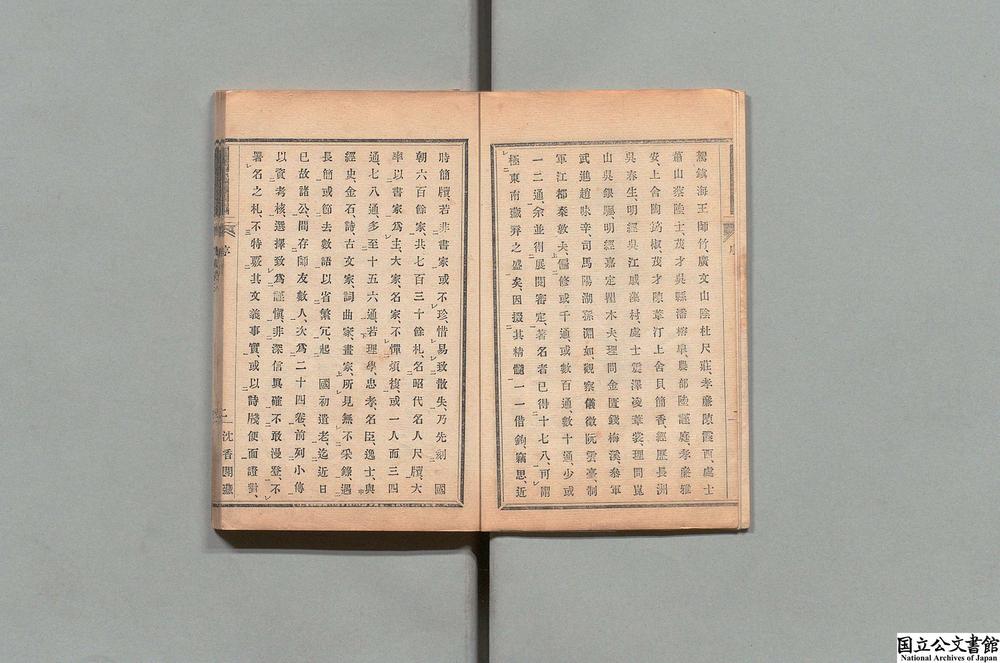 鴛鎮海王師竹、廣文山陰杜尺莊、孝廉陳霞西、處士
蕭山蔡陸士、茂才吳縣潘榕皐、農部陸謹庭、孝廉雅
安、上舍陶筠椒、茂才陳葦汀、上舍貝簡香、經歷長洲
吳春生、明經吳江戚藻村、處士震澤凌華裳、理問崑
山吳銀䭾、明經嘉定瞿木夫、理問金匱錢梅溪、參軍
武進趙味辛、司馬陽湖孫淵如、觀察儀徵阮雲臺、制
軍江都秦敦夫、儤修或千通、或數百通、數十通、少或
一二通、余並得展閱審定、著名者已得十七八、可謂
極東南藏弆之盛矣、因掇其精髓、一一借鉤、竊思、近
時簡牘、若非書家或不珍、惜易致散失、乃先刻 國
朝六百餘家、共七百三十餘札、名昭代名人尺牘、大
率以書家為主、大家名家不憚煩複、或一人而三四
通、七八通、多至十五六通、若理學、忠孝、名臣、逸士、與
經史、金石、詩、古文家、詞曲家、畫家、所見無不采錄、遇
長簡或節去數語以省繁冗、起 國初遺老、迄近日
已故諸公、間存師友數人、次為二十四卷、前列小傳
以資考核、選擇致為謹愼、非深信與確不敢漫登、不
署名之札、不特覈其文義事實、或以詩牋便面證對、
序
二
沈香閣藏
序
二
国立公文書館
National Archives of Japan